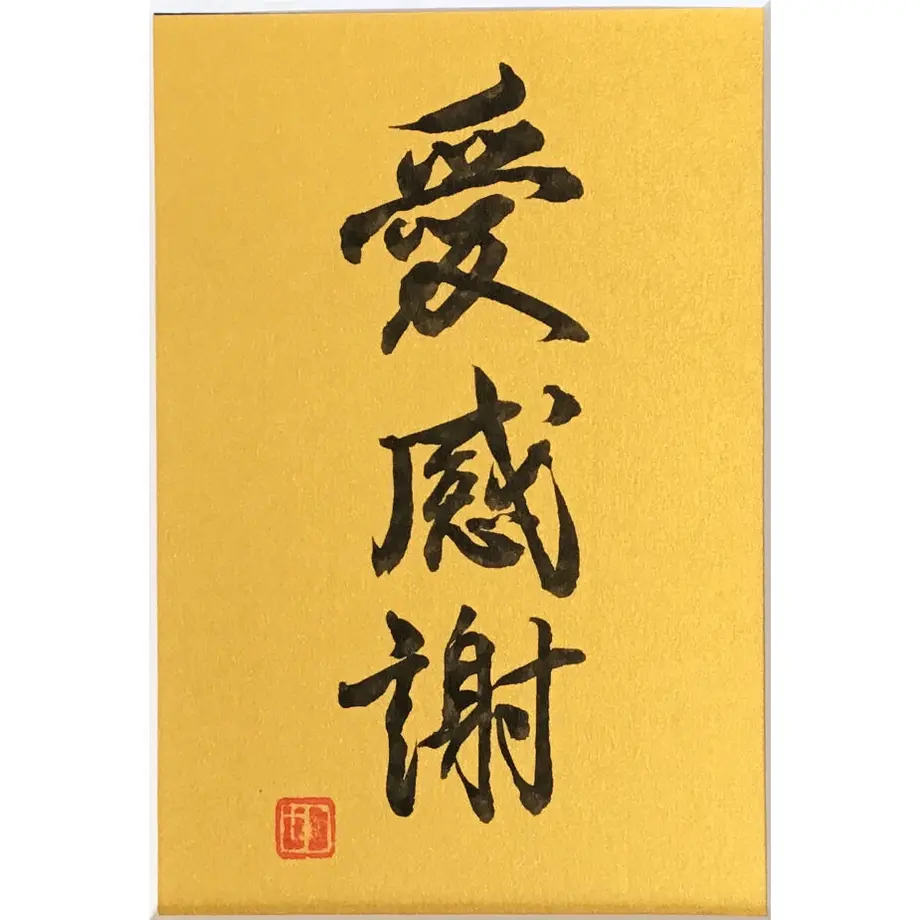 愛感謝